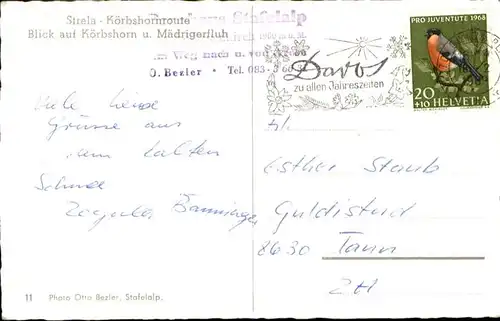 Strela - Körbshornroute
Blick auf Körbshorn u. Mädrigerfluh
Stafelalp
1960 m ü. M.
im Weg nach u. von
O. Bezler • Tel. 083 - 3 60 51
PRO JUVENTUTE 1968
Davos
zu allen Jahreszeiten
20
+10 HELVETIA
Viele liebe
Grüsse aus
dem kalten
Schnee
Frl.
Esther Staub
8630 Tann
ZH
11 Photo Otto Bezler, Stafelalp.